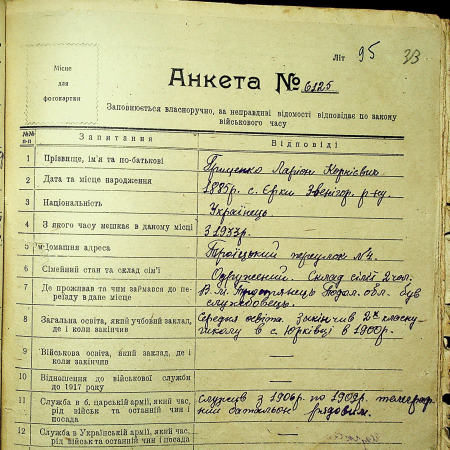 Літ 95 33
Місце
для
фотокартки
Анкета № 6125
Заповнюється власноручно, за неправдиві відомості відповідає по закону
військового часу
№№
п-п
Запитання
Відповіді
1 Прізвище, ім'я та по-батькові
Грищенко Ларіон Корнієвич
2 Дата та місце народження
1885 р. с. Єрки Звенигор. р-ну.
3 Національність
Українець
4 З якого часу мешкає в даному місці
З 1933 р.
5 Домашня адреса
Троїцький переулок № 4.
6 Сімейний стан та склад сім'ї
Одружений. Склад сімї 2 чол.
7 Де проживав та чим займався до пе-
реїзду в дане місце
В. м. Тростянець Подол. обл. був
службовець.
8 Загальна освіта, який учбовий заклад,
де і коли закінчив
Середня освіта закінчив 2х класну
школу в с. Юрківці в 1900 р.
9 Військова освіта, який заклад, де і
коли закінчив
—
10 Відношення до військової служби
до 1917 року
—
11 Служба в б. царській армії, який час,
рід військ та останній чин і
посада
Служив з 1906 р. по 1909 р. телеграф
ний батальон рядовим.
12 Служба в Українській армії, який час,
рід військ та останній чин і посада
—